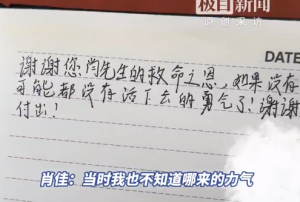 极目新闻
原创采访
DATE
谢谢您尚先生的救命之恩，如果没有
可能都没有活下去的勇气了！谢谢
付出！
肖佳：当时我也不知道哪来的力气